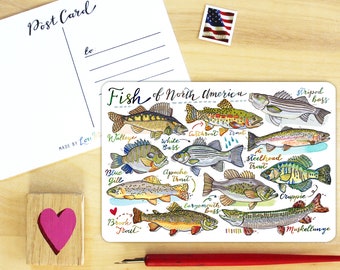 Post Card
to
MADE BY
Fish of North America
Walleye
Cutthroat Trout
Striped bass
White bass
Steelhead Trout
Blue Gill
Apache Trout
Largemouth bass
Crappie
Brook Trout
Muskellunge